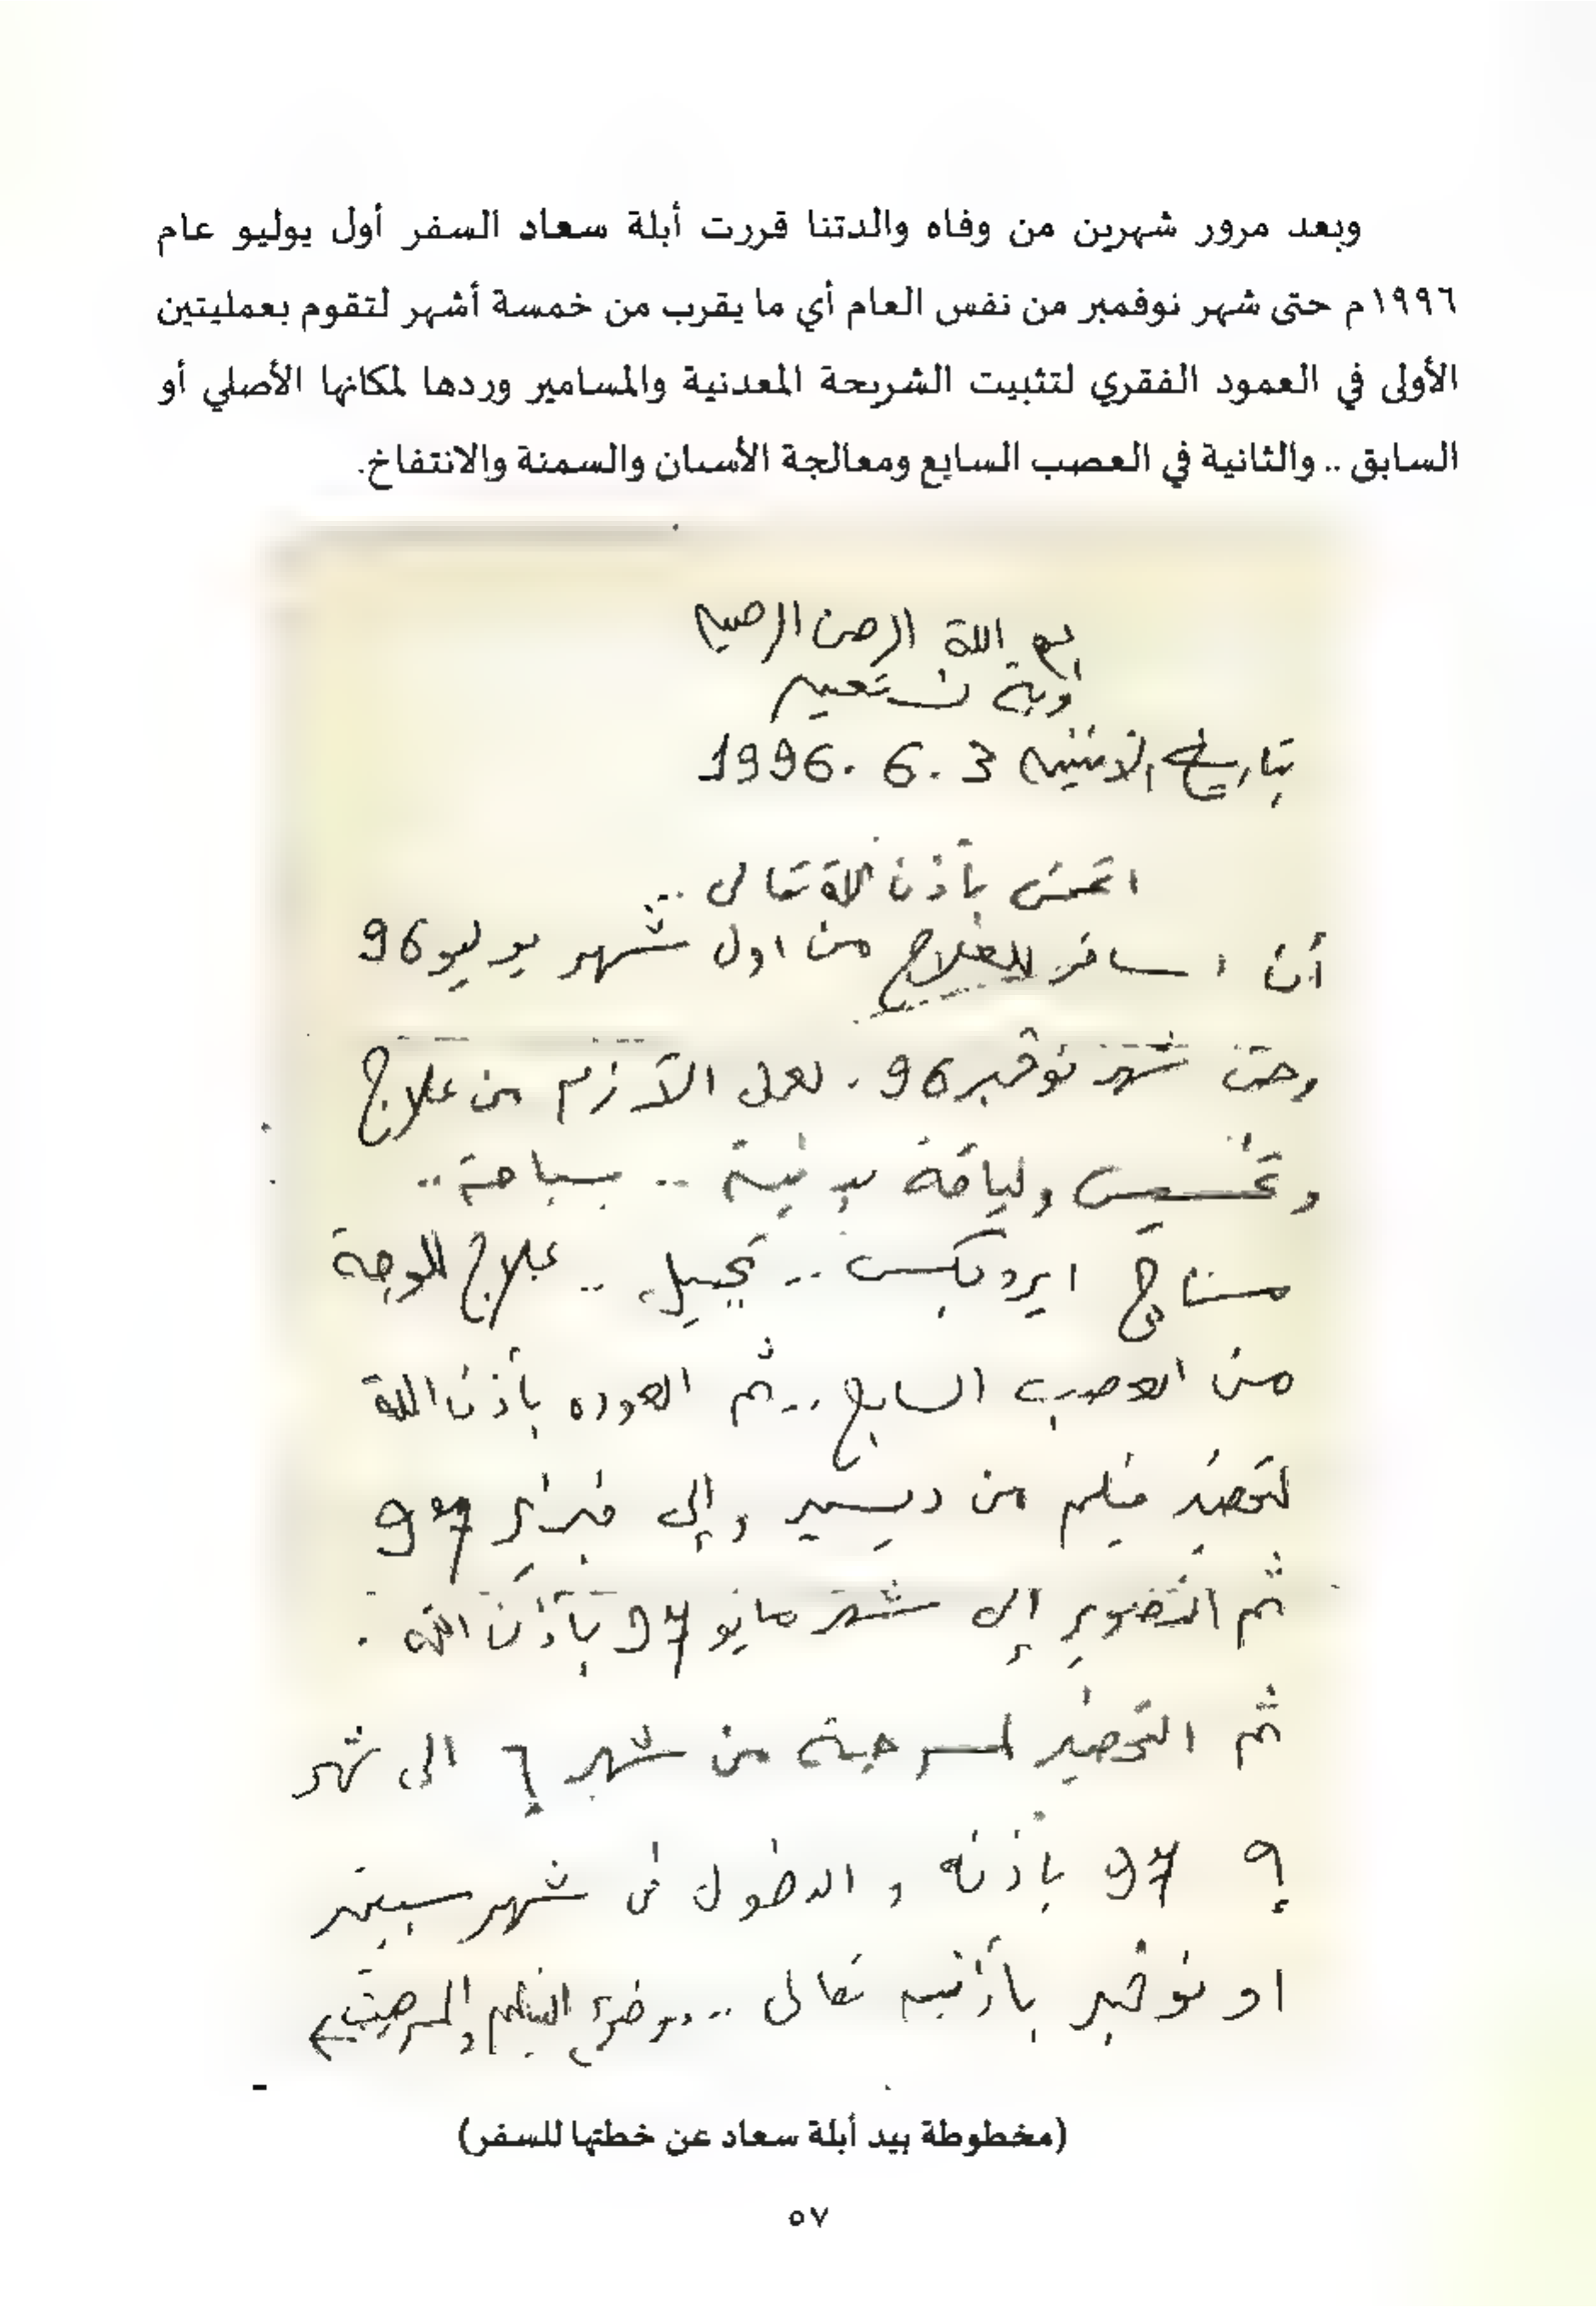 وبعد مرور شهرين من وفاه والدتنا قررت أبلة سعاد السفر أول يوليو عام
١٩٩٦م حتى شهر نوفمبر من نفس العام أي ما يقرب من خمسة أشهر لتقوم بعمليتين
الأولى في العمود الفقري لتثبيت الشريحة المعدنية والمسامير وردها لمكانها الأصلي أو
السابق .. والثانية في العصب السابع ومعالجة الأسنان والسمنة والانتفاخ.
بسم اللة الرحمن الرحيم
وبة نستعين
بتاريخ الاثنين 3 . 6 . 1996
اتمنى بأذن اللة تعالى ..
أن اسافر للعلاج من اول شهر يوليو 96
وحتى شهر نوفمبر 96 . لعمل الآزم من علاج
وتخسيس ولياقة بدنية .. سباحة ..
مساج ايروبكس .. تجميل .. علاج للوجة
من العصب السابع .. ثم العوده بأذن اللة
لتحضير فيلم من ديسمبر وإلى فبراير 97
ثم التصوير إلى شهر مايو 97 بأذن الله .
ثم التحضير لمسرحية من شهر ٦ الى شهر
٩ 97 بأذنه والدخول فى شهر سبتمبر
او نوفمبر بأذنه تعالى .. موضوع الفيلم والمسرحية
(مخطوطة بيد أبلة سعاد عن خطتها للسفر)
٥٧